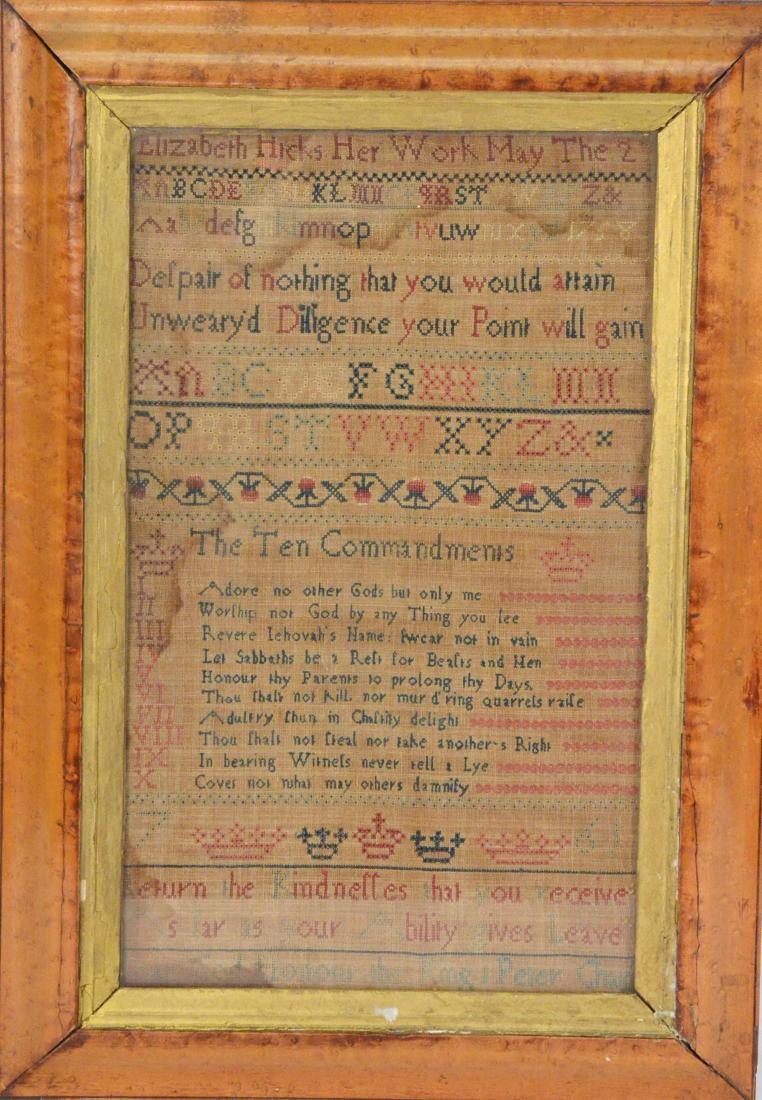 Elizabeth Hicks Her Work May The 2
A B C D E K L M Q R S T Z &
A a d e f g k m n o p t v u w
Deſpair of nothing that you would attain
Unweary'd Dilligence your Point will gain
A B C F G H I K L M N
O P S T V W X Y Z &
The Ten Commandments
I Adore no other Gods but only me
II Worſhip not God by any Thing you ſee
III Revere Iehovah's Name: ſwear not in vain
IV Let Sabbaths be a Reſt for Beaſts and Men
V Honour thy Parents to prolong thy Days.
VI Thou ſhalt not kill. nor murd'ring quarrels raiſe
VII Adultry ſhun in Chaſtity delight
VIII Thou ſhalt not ſteal nor take another-s Right
IX In bearing Witneſs never tell a Lye
X Covet not what may others damnify
7 61
Return the Kindneſſes that you receive
As far as your Ability gives Leave
Honour the King 1 Peter Chap